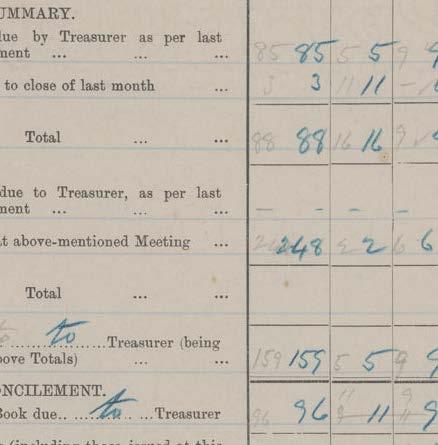 UMMARY.
due by Treasurer as per last
ment ... ... ... 85 85 5 5 9 9
to close of last month ... 3 3 11 11 -
Total ... ... 88 88 16 16 9 9
due to Treasurer, as per last
ment ... ... ... - - - -
at above-mentioned Meeting ... 248 2 6 6
Total ... ...
to to Treasurer (being
bove Totals) ... ... 159 159 5 5 9 9
ONCILEMENT. 11 9
Book due.. to ...Treasurer 96 96 11 9
(including those issued at this